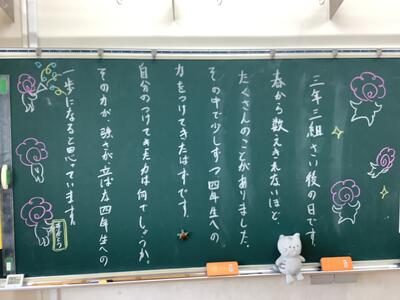 三年三組さい後の日です。
春から数えきれないほど、
たくさんのことがありました。
その中で少しずつ四年生への
力をつけてきたはずです。
自分のつけてきた力は何でしょうか。
その力が、強さが、立ぱな四年生への
一歩になると思っています。